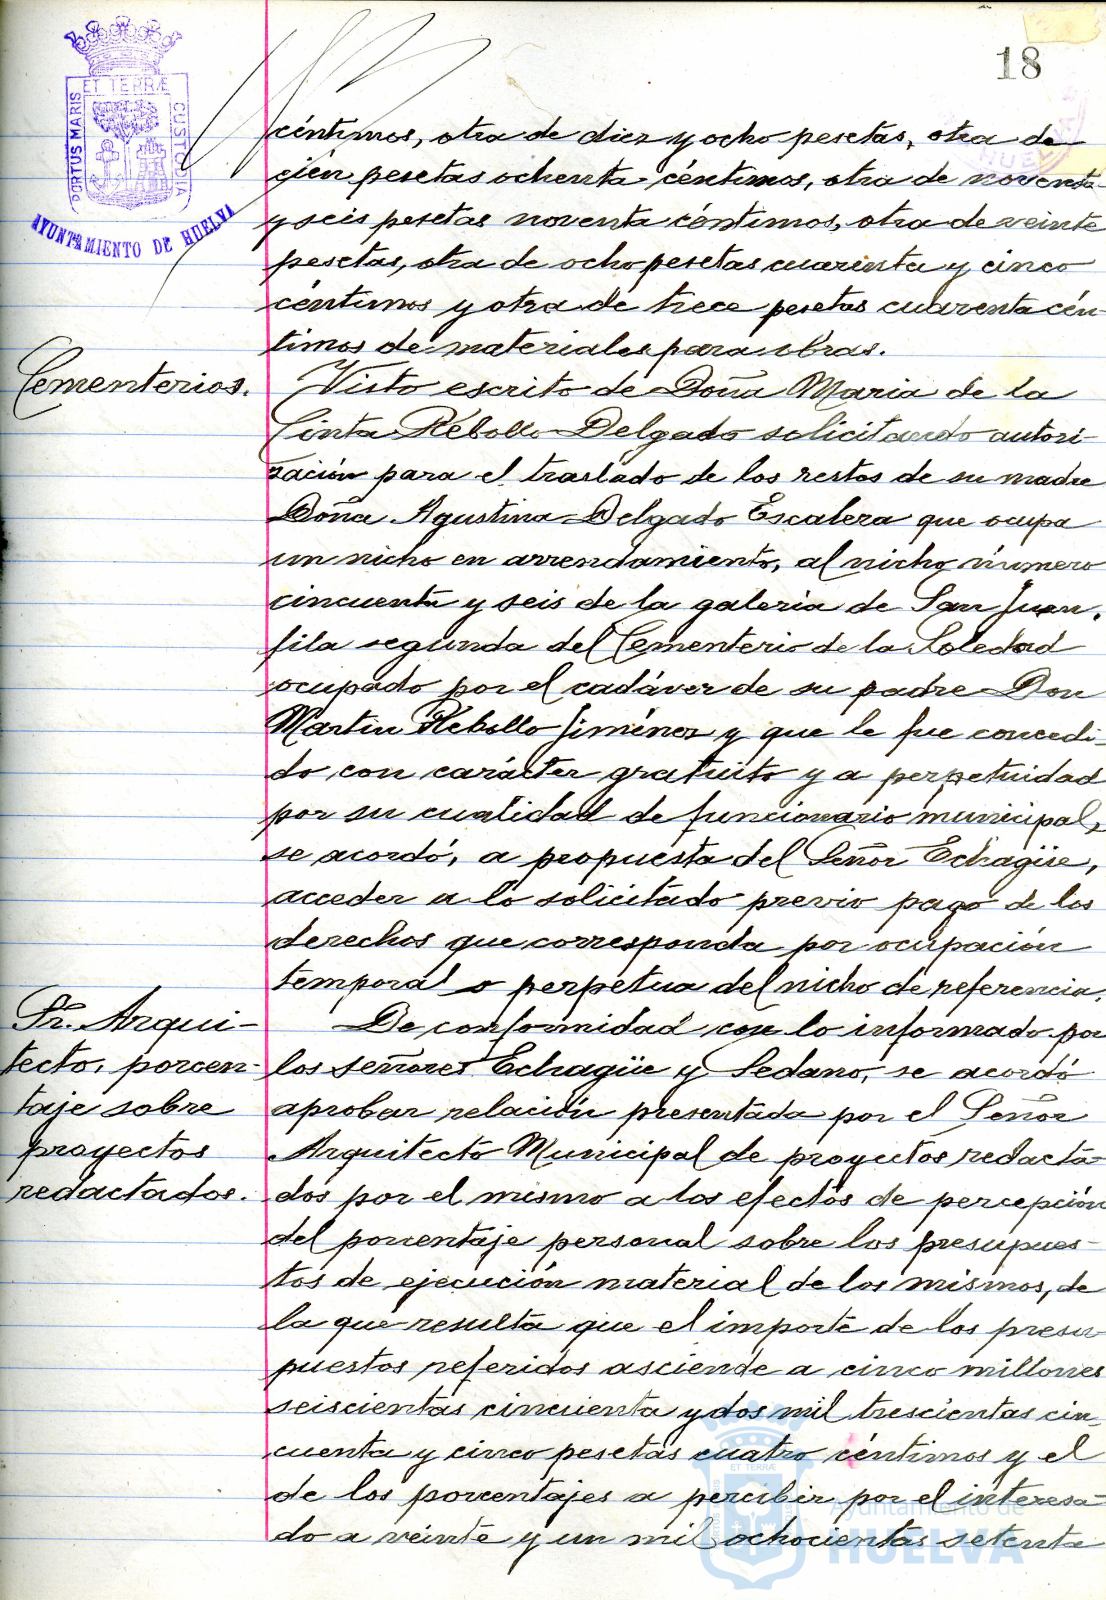 18
PORTUS MARIS
ET TERRÆ
CUSTODIA
AYUNTAMIENTO DE HUELVA
céntimos, otra de diez y ocho pesetas, otra de
cien pesetas ochenta céntimos, otra de noventa
y seis pesetas noventa céntimos, otra de veinte
pesetas, otra de ocho pesetas cuarenta y cinco
céntimos y otra de trece pesetas cuarenta cén-
timos de materiales para obras.
Cementerios.
Visto escrito de Doña Maria de la
Cinta Rebollo Delgado solicitando autori-
zación para el traslado de los restos de su madre
Doña Agustina Delgado Escalera que ocupa
un nicho en arrendamiento, al nicho número
cincuenta y seis de la galeria de San Juan,
fila segunda del Cementerio de la Soledad
ocupado por el cadáver de su padre Don
Martin Rebollo Jiménez y que le fue concedi-
do con carácter gratuito y a perpetuidad
por su cualidad de funcionario municipal,
se acordó, a propuesta del Señor Echagüe,
acceder a lo solicitado previo pago de los
derechos que corresponda por ocupación
temporal o perpetua del nicho de referencia.
Sr. Arqui-
tecto, porcen-
taje sobre
proyectos
redactados.
De conformidad con lo informado por
los señores Echagüe y Sedano, se acordó
aprobar relación presentada por el Señor
Arquitecto Municipal de proyectos redacta-
dos por el mismo a los efectos de percepción
del porcentaje personal sobre los presupues-
tos de ejecución material de los mismos, de
la que resulta que el importe de los presu-
puestos referidos asciende a cinco millones
seiscientas cincuenta y dos mil trescientas cin-
cuenta y cinco pesetas cuatro céntimos y el
de los porcentajes a percibir por el interesa-
do a veinte y un mil ochocientas setenta
Ayuntamiento de
HUELVA